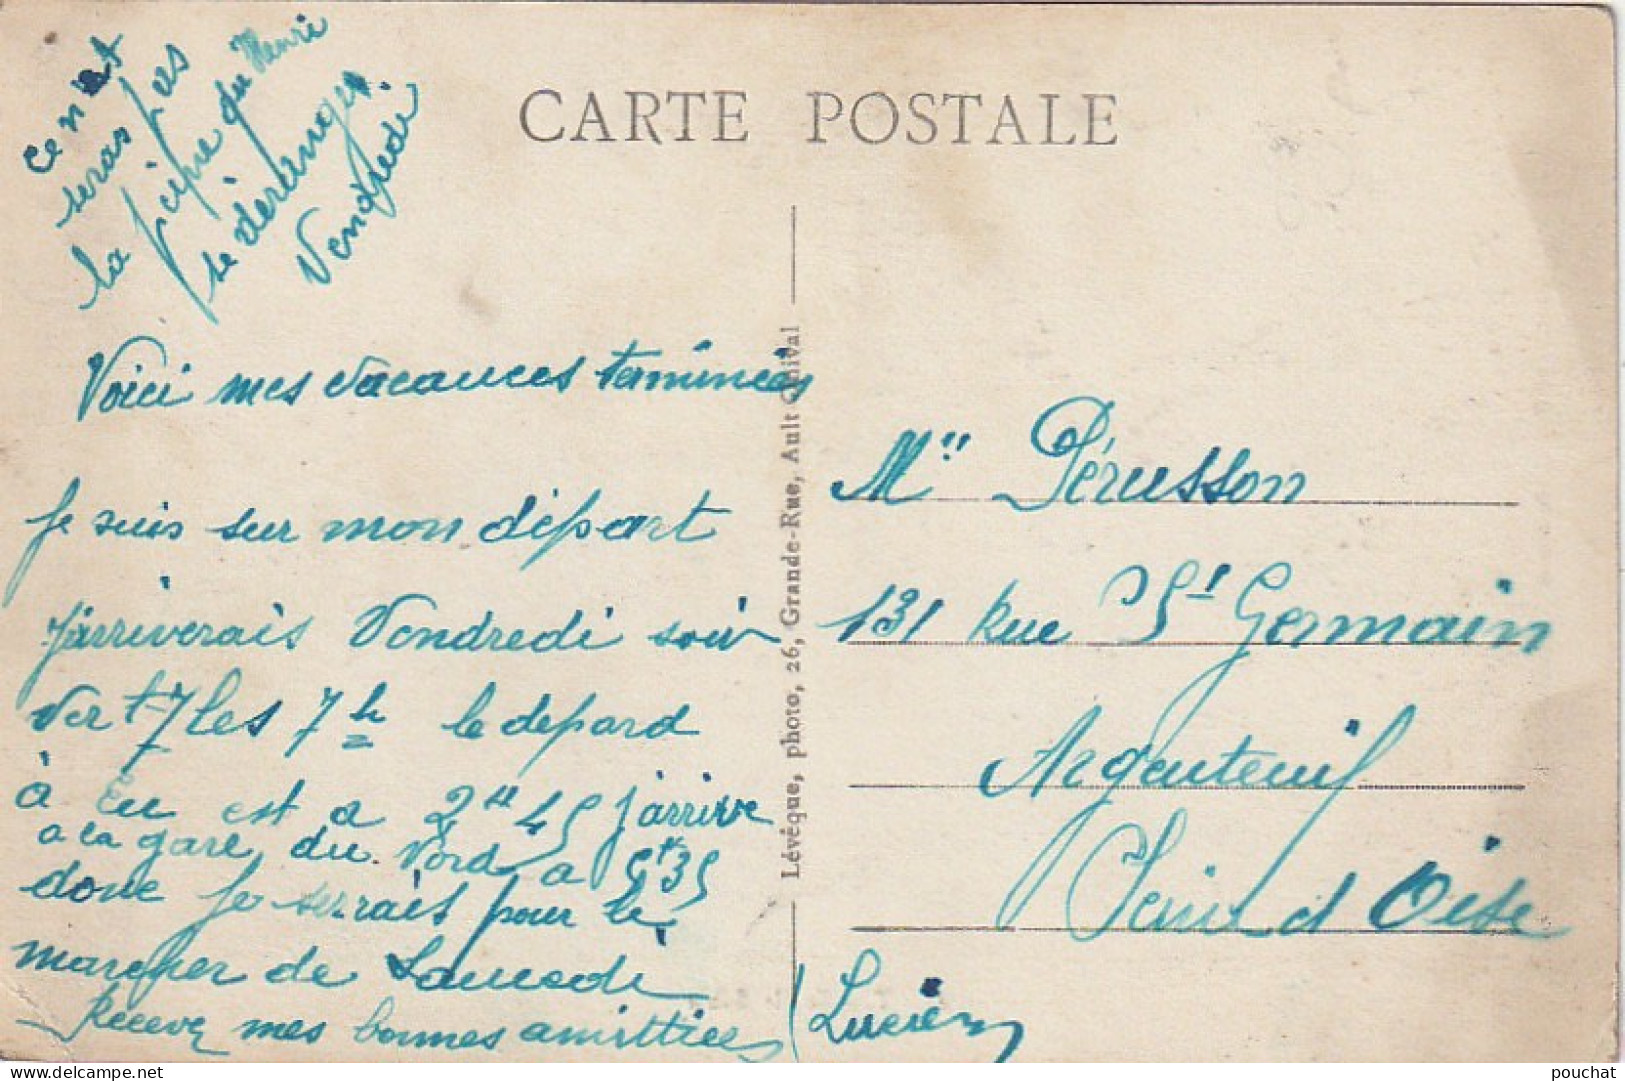 CARTE POSTALE
Ce n'et
seras pas
la peine qu Henri
se déranger
Vendredi
Voici mes vacances terminées
Je suis sur mon départ
J'arriverais Vendredi soir
ver les 7h le depard
à Eu est a 2h 45 j'arrive
a la gare du Nord a 5h35
donc je serrais pour le
marcher de Samedi
Recevez mes bonnes amittiees
Lucien
Lévêque, photo, 26, Grande-Rue, Ault Onival
Mr Pérusson
131 Rue St Germain
Argenteuil
Seine d Oise
pouchat